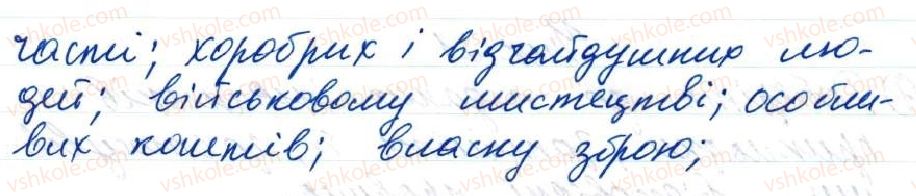 часті; хоробрих і відчайдушних лю-
дей; військовому мистецтві; особли-
вих коштів; власну зброю;